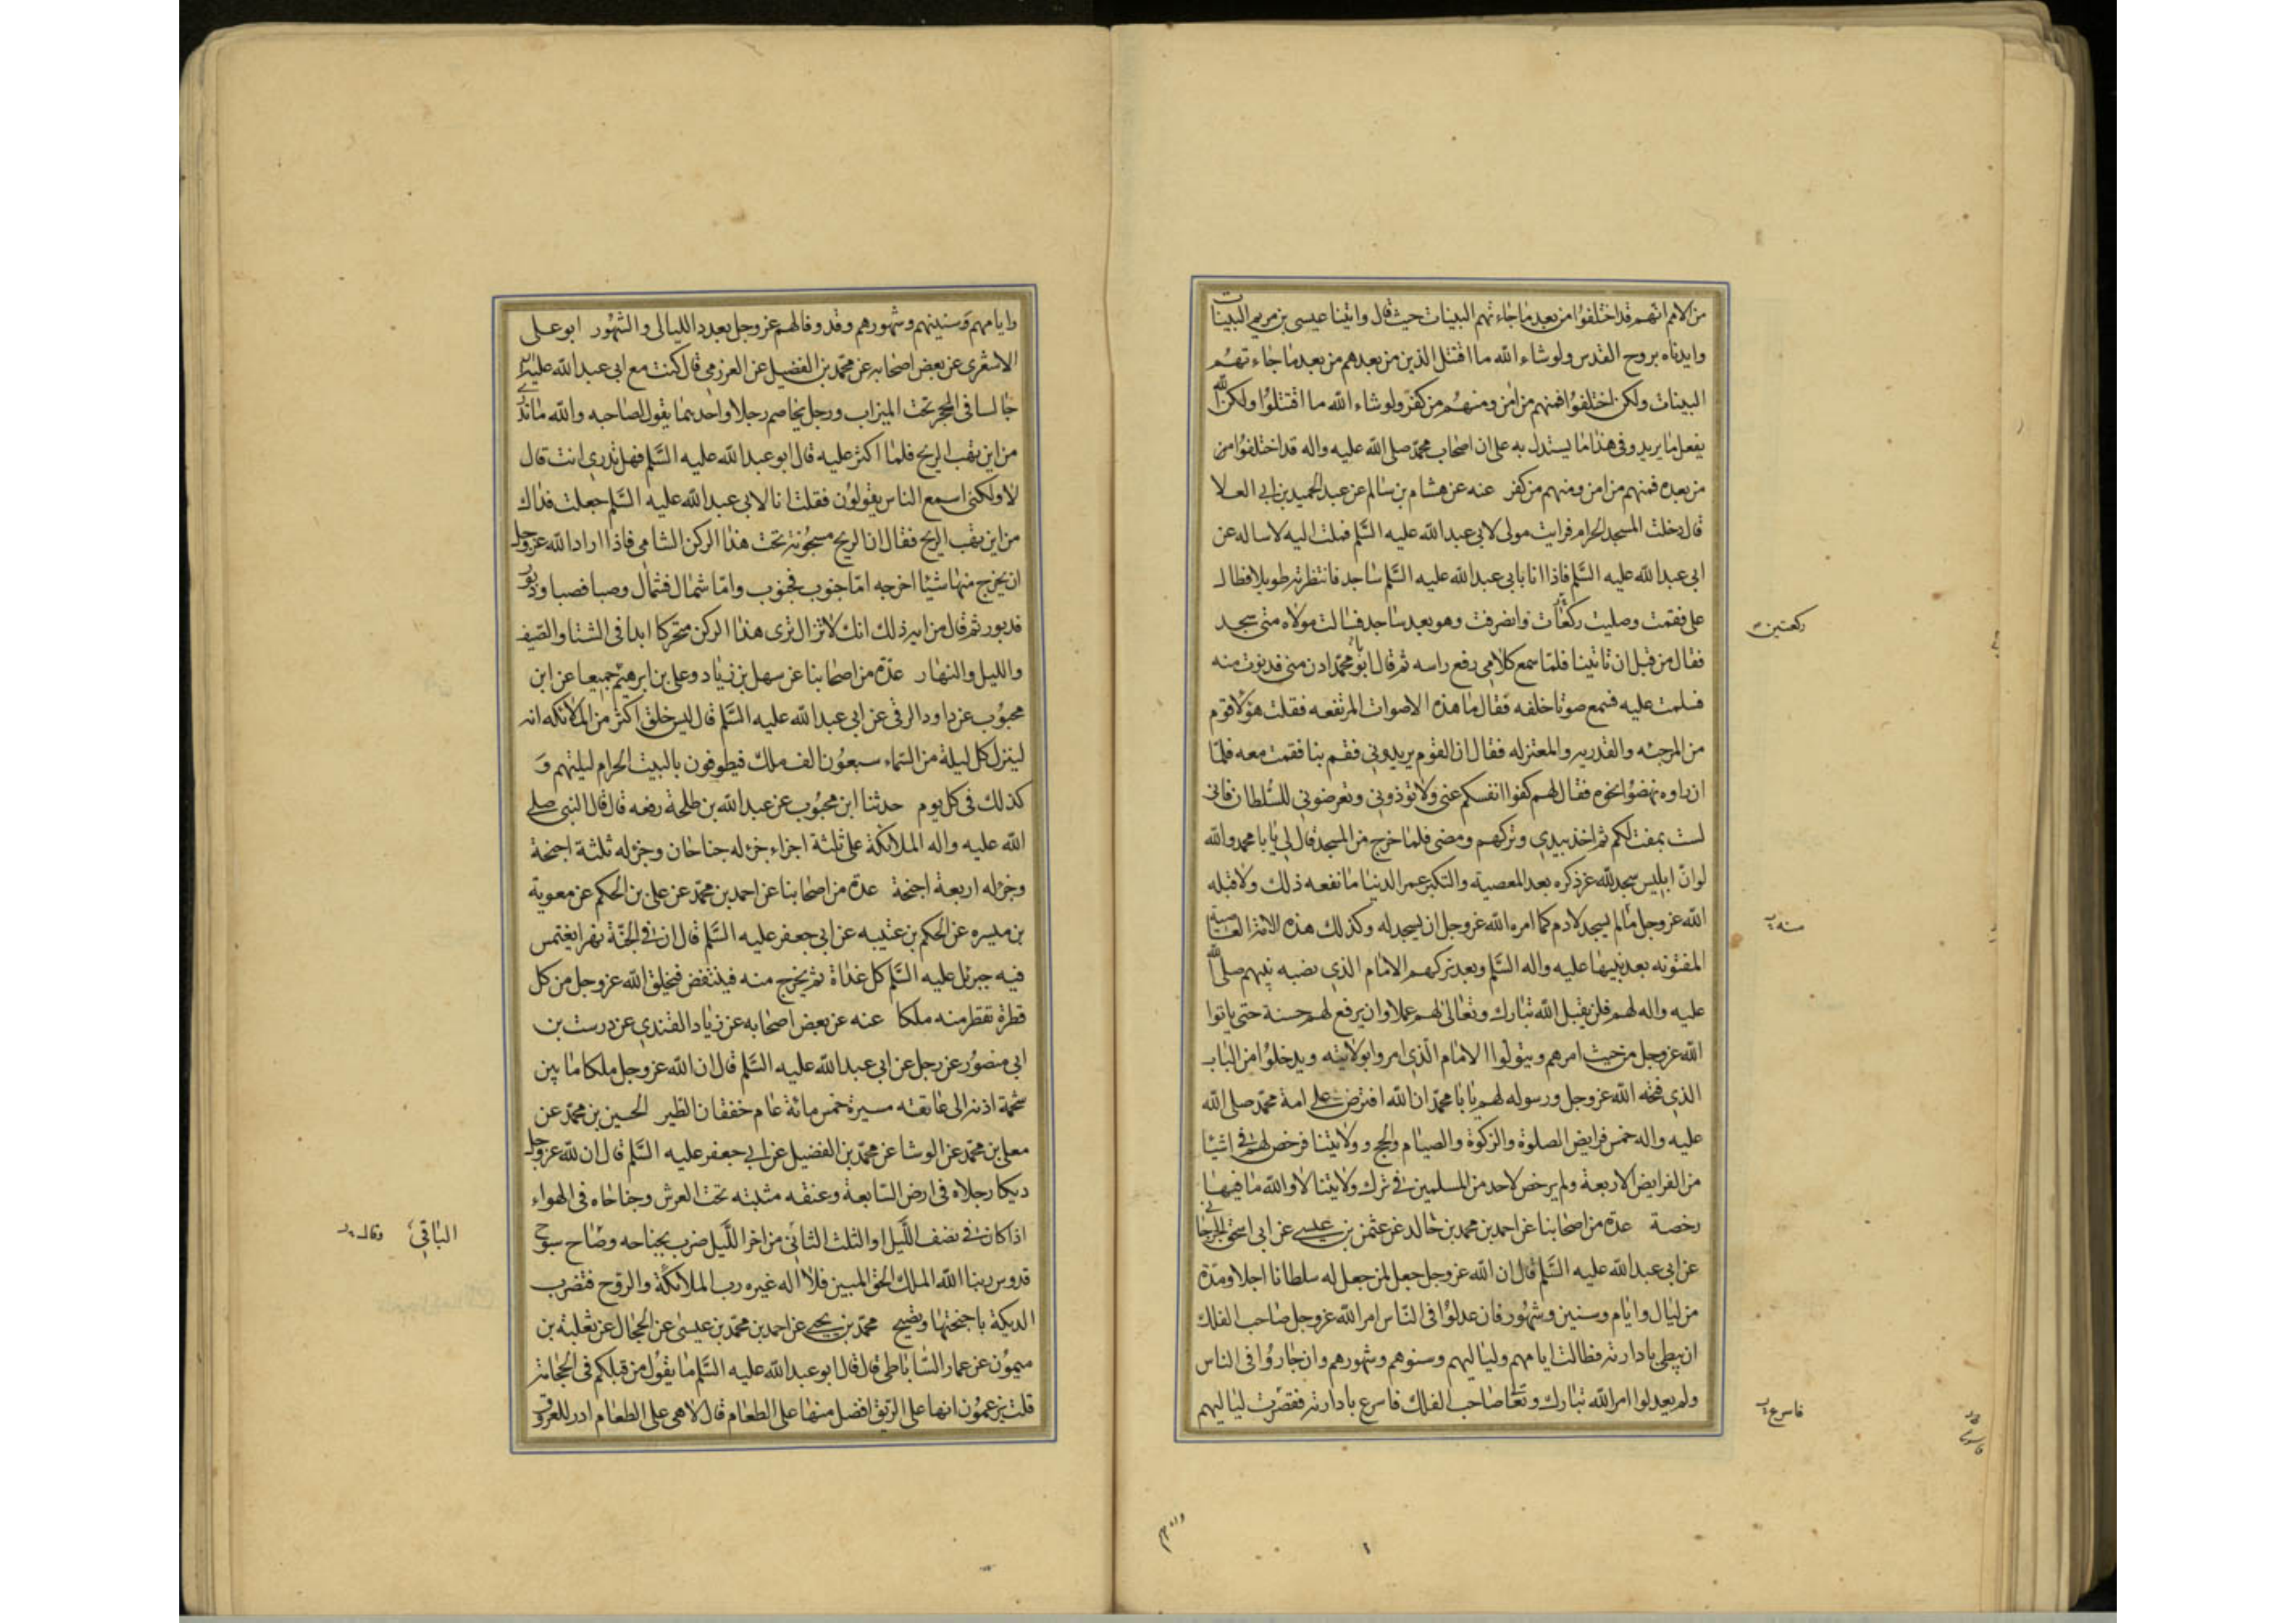 من الامم انهم قد اختلفوا من بعد ما جاءتهم البينات حيث قال واتينا عيسى بن مريم البينات
وايدناه بروح القدس ولو شاء الله ما اقتتل الذين من بعدهم من بعد ما جاءتهم
البينات ولكن اختلفوا فمنهم من امن ومنهم من كفر ولو شاء الله ما اقتتلوا ولكن الله
يفعل ما يريد وفى هذا ما يستدل به على ان اصحاب محمد صلى الله عليه واله قد اختلفوا من
من بعده فمنهم من امن ومنهم من كفر عنه عن هشام بن سالم عن عبد الحميد بن ابي العلا
قال دخلت المسجد الحرام فرايت مولى لابي عبد الله عليه السلم فملت اليه لاساله عن
ابى عبد الله عليه السلم فاذا انا بابى عبد الله عليه السلم ساجد فانتظرته طويلا فطال
على فقمت وصليت ركعات وانصرفت وهو بعد ساجد فسالت مولاه متى سجد
ركعتين
فقال من قبل ان تاتينا فلما سمع كلامي رفع راسه ثم قال ابو محمد ادن منى فدنوت منه
يا
فسلمت عليه فسمع صوتا خلفه فقال ما هذه الاصوات المرتفعه فقلت هؤلا قوم
من المرجئه والقدريه والمعتزله فقال ان القوم يريدوني فقم بنا فقمت معه فلما
ان راوه نهضوا نحوه فقال لهم كفوا انفسكم عنى ولا توذوني وتعرضوني للسلطان فانى
لست بمفت لكم ثم اخذ بيدي وتركهم ومضى فلما خرج من المسجد قال لي يا با محمد والله
لو ان ابليس سجد لله عز ذكره بعد المعصية والتكبر عمر الدنيا ما نفعه ذلك ولا قبله
الله عز وجل ما لم يسجد لادم كما امره الله عز وجل ان يسجد له وكذلك هذه الامة العاصية
منه
المفتونه بعد نبيها عليه واله السلم وبعد تركهم الامام الذي نصبه نبيهم صلى الله
عليه واله لهم فلن يقبل الله تبارك وتعالى لهم عملا ولن يرفع لهم حسنة حتى ياتوا
الله عز وجل من حيث امرهم ويتولوا الامام الذي امروا بولايته ويدخلوا من الباب
الذي فتحه الله عز وجل ورسوله لهم يا با محمد ان الله افترض على امة محمد صلى الله
عليه واله خمس فرايض الصلوة والزكوة والصيام والحج وولايتنا فرخص لهم في اشيا
من الفرايض الاربعة ولم يرخص لاحد من المسلمين في ترك ولايتنا لا والله ما فيها
رخصة عدة من اصحابنا عن احمد بن محمد بن خالد عن عثمن بن عيسى عن ابى اسحق الجرجاني
عن ابى عبد الله عليه السلم قال ان الله عز وجل جعل لمن جعل له سلطانا اجلا ومدة
من ليال وايام وسنين وشهور فان عدلوا فى الناس امر الله عز وجل صاحب الفلك
ان يبطي بادارته فطالت ايامهم ولياليهم وسنوهم وشهورهم وان جاروا فى الناس
ولم يعدلوا امر الله تبارك وتعا صاحب الفلك فاسرع بادارته فقصرت لياليهم
فاسرع
وايامهم
وايامهم وسنينهم وشهورهم وقد وفا لهم عز وجل بعدد الليالى والشهور ابو على
الاشعرى عن بعض اصحابه عن محمد بن الفضيل عن العرزمي قال كنت مع ابى عبد الله عليه
جالسا فى الحجر تحت الميزاب ورجل يخاصم رجلا واحدهما يقول لصاحبه والله ما تدري
من اين تهب الريح فلما اكثر عليه قال ابو عبد الله عليه السلم فهل تدري انت قال
لا ولكنى اسمع الناس يقولون فقلت انا لابى عبد الله عليه السلم جعلت فداك
من اين تهب الريح فقال ان الريح مسجونة تحت هذا الركن الشامي فاذا اراد الله عز وجل
ان يخرج منها شيئا اخرجه اما جنوب فجنوب واما شمال فشمال وصبا فصبا ودبور
فدبور ثم قال من اية ذلك انك لا تزال ترى هذا الركن متحركا ابدا فى الشتا والصيف
والليل والنهار عدة من اصحابنا عن سهل بن زياد وعلى بن ابرهيم جميعا عن ابن
محبوب عن داود الرقى عن ابى عبد الله عليه السلم قال ليس خلق اكثر من الملائكه انه
لينزل كل ليلة من السماء سبعون الف ملك فيطوفون بالبيت الحرام ليلتهم و
كذلك فى كل يوم حدثنا ابن محبوب عن عبد الله بن طلحة رفعه قال قال النبى صلى
الله عليه واله الملائكة على ثلثة اجزاء جزء له جناحان وجزء له ثلثة اجنحة
وجزء له اربعة اجنحة عدة من اصحابنا عن احمد بن محمد عن على بن الحكم عن معوية
بن ميسره عن الحكم بن عتيبه عن ابى جعفر عليه السلم قال ان في الجنة نهرا يغتمس
فيه جبرئل عليه السلم كل غداة ثم يخرج منه فينتفض فيخلق الله عز وجل من كل
قطرة تقطر منه ملكا عنه عن بعض اصحابه عن زياد القندي عن درست بن
ابى منصور عن رجل عن ابى عبد الله عليه السلم قال ان الله عز وجل ملكا ما بين
شحمة اذنه الى عاتقه مسيرة خمس مائة عام خفقان الطير الحسين بن محمد عن
معلى بن محمد عن الوشا عن محمد بن الفضيل عن ابي جعفر عليه السلم قال ان لله عز وجل
ديكا رجلاه فى ارض السابعة وعنقه مثبته تحت العرش وجناحاه فى الهواء
اذا كان في نصف الليل او الثلث الثانى من اخر الليل ضرب بجناحه وصاح سبوح
الباقي وقال
قدوس ربنا الله الملك الحق المبين فلا اله غيره رب الملائكة والروح فتضرب
الديكة باجنحتها وتصيح محمد بن يحيى عن احمد بن محمد بن عيسى عن الحجال عن ثعلبة بن
ميمون عن عمار الساباطى قال قال ابو عبد الله عليه السلم ما يقول من قبلكم فى الحجامة
قلت يزعمون انها على الريق افضل منها على الطعام قال لا هى على الطعام ادر للعروق